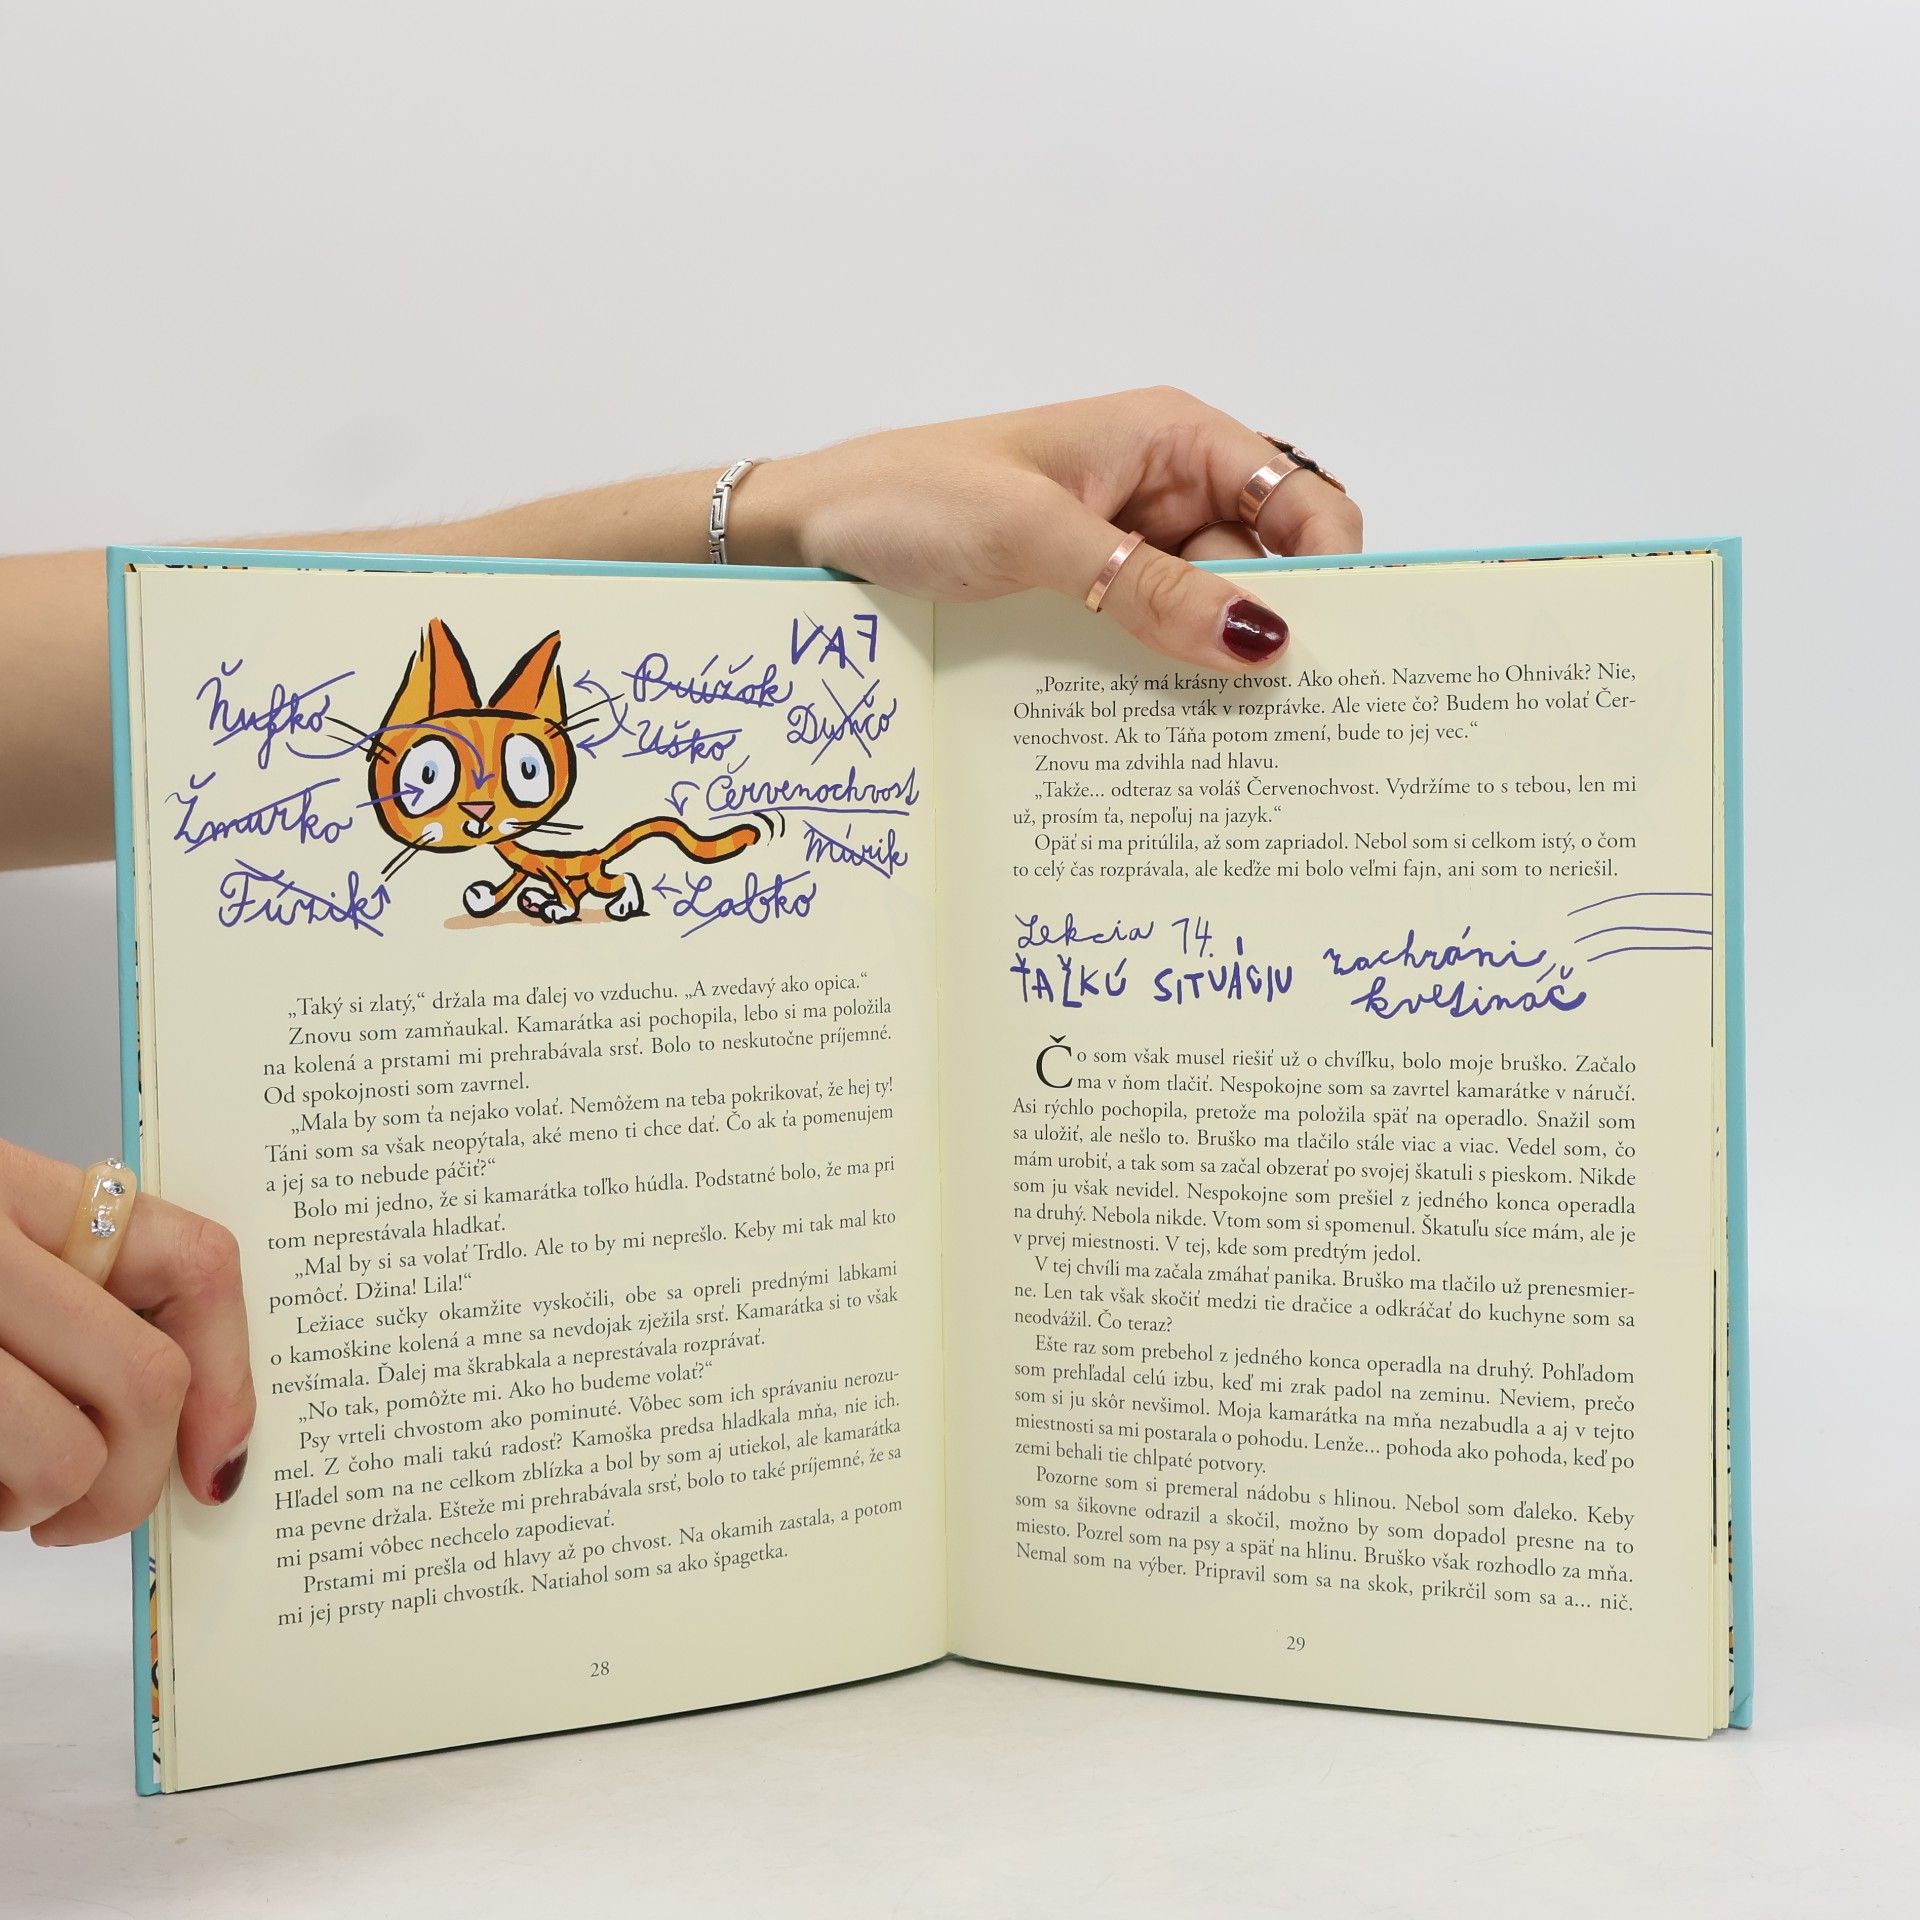 Ňufko
Žmurko
Fúzik
Prúžok
Uško
VAF
Dunčo
Červenochvost
Múrik
Labko
„Taký si zlatý,“ držala ma ďalej vo vzduchu. „A zvedavý ako opica.“
Znovu som zamňaukal. Kamarátka asi pochopila, lebo si ma položila
na kolená a prstami mi prehrabávala srsť. Bolo to neskutočne príjemné.
Od spokojnosti som zavrnel.
„Mala by som ťa nejako volať. Nemôžem na teba pokrikovať, že hej ty!
Táni som sa však neopýtala, aké meno ti chce dať. Čo ak ťa pomenujem
a jej sa to nebude páčiť?“
Bolo mi jedno, že si kamarátka toľko húdla. Podstatné bolo, že ma pri
tom neprestávala hladkať.
„Mal by si sa volať Trdlo. Ale to by mi neprešlo. Keby mi tak mal kto
pomôcť. Džina! Lila!“
Ležiace sučky okamžite vyskočili, obe sa opreli prednými labkami
o kamoškine kolená a mne sa nevdojak zježila srsť. Kamarátka si to však
nevšímala. Ďalej ma škrabkala a neprestávala rozprávať.
„No tak, pomôžte mi. Ako ho budeme volať?“
Psy vrteli chvostom ako pominuté. Vôbec som ich správaniu nerozu-
mel. Z čoho mali takú radosť? Kamoška predsa hladkala mňa, nie ich.
Hľadel som na ne celkom zblízka a bol by som aj utiekol, ale kamarátka
ma pevne držala. Ešteže mi prehrabávala srsť, bolo to také príjemné, že sa
mi psami vôbec nechcelo zapodievať.
Prstami mi prešla od hlavy až po chvost. Na okamih zastala, a potom
mi jej prsty napli chvostík. Natiahol som sa ako špagetka.
28
„Pozrite, aký má krásny chvost. Ako oheň. Nazveme ho Ohnivák? Nie,
Ohnivák bol predsa vták v rozprávke. Ale viete čo? Budem ho volať Čer-
venochvost. Ak to Táňa potom zmení, bude to jej vec.“
Znovu ma zdvihla nad hlavu.
„Takže... odteraz sa voláš Červenochvost. Vydržíme to s tebou, len mi
už, prosím ťa, nepoľuj na jazyk.“
Opäť si ma pritúlila, až som zapriadol. Nebol som si celkom istý, o čom
to celý čas rozprávala, ale keďže mi bolo veľmi fajn, ani som to neriešil.
Lekcia 14.
ŤAŽKÚ SITUÁCIU zachráni
kvetináč
Čo som však musel riešiť už o chvíľku, bolo moje bruško. Začalo
ma v ňom tlačiť. Nespokojne som sa zavrtel kamarátke v náručí.
Asi rýchlo pochopila, pretože ma položila späť na operadlo. Snažil som
sa uložiť, ale nešlo to. Bruško ma tlačilo stále viac a viac. Vedel som, čo
mám urobiť, a tak som sa začal obzerať po svojej škatuli s pieskom. Nikde
som ju však nevidel. Nespokojne som prešiel z jedného konca operadla
na druhý. Nebola nikde. Vtom som si spomenul. Škatuľu síce mám, ale je
v prvej miestnosti. V tej, kde som predtým jedol.
V tej chvíli ma začala zmáhať panika. Bruško ma tlačilo už prenesmier-
ne. Len tak však skočiť medzi tie dračice a odkráčať do kuchyne som sa
neodvážil. Čo teraz?
Ešte raz som prebehol z jedného konca operadla na druhý. Pohľadom
som prehľadal celú izbu, keď mi zrak padol na zeminu. Neviem, prečo
som si ju skôr nevšimol. Moja kamarátka na mňa nezabudla a aj v tejto
miestnosti sa mi postarala o pohodu. Lenže... pohoda ako pohoda, keď po
zemi behali tie chlpaté potvory.
Pozorne som si premeral nádobu s hlinou. Nebol som ďaleko. Keby
som sa šikovne odrazil a skočil, možno by som dopadol presne na to
miesto. Pozrel som na psy a späť na hlinu. Bruško však rozhodlo za mňa.
Nemal som na výber. Pripravil som sa na skok, prikrčil som sa a... nič.
29